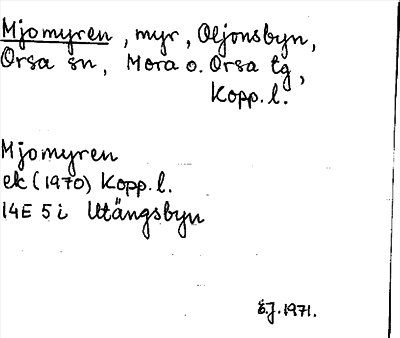 Mjomyren, myr, Oljonsbyn,
Orsa sn, Mora o. Orsa tg,
Kopp.l.
Mjomyren
ek (1970) Kopp.l.
14E 5i Utängsbyn
E.J. 1971.